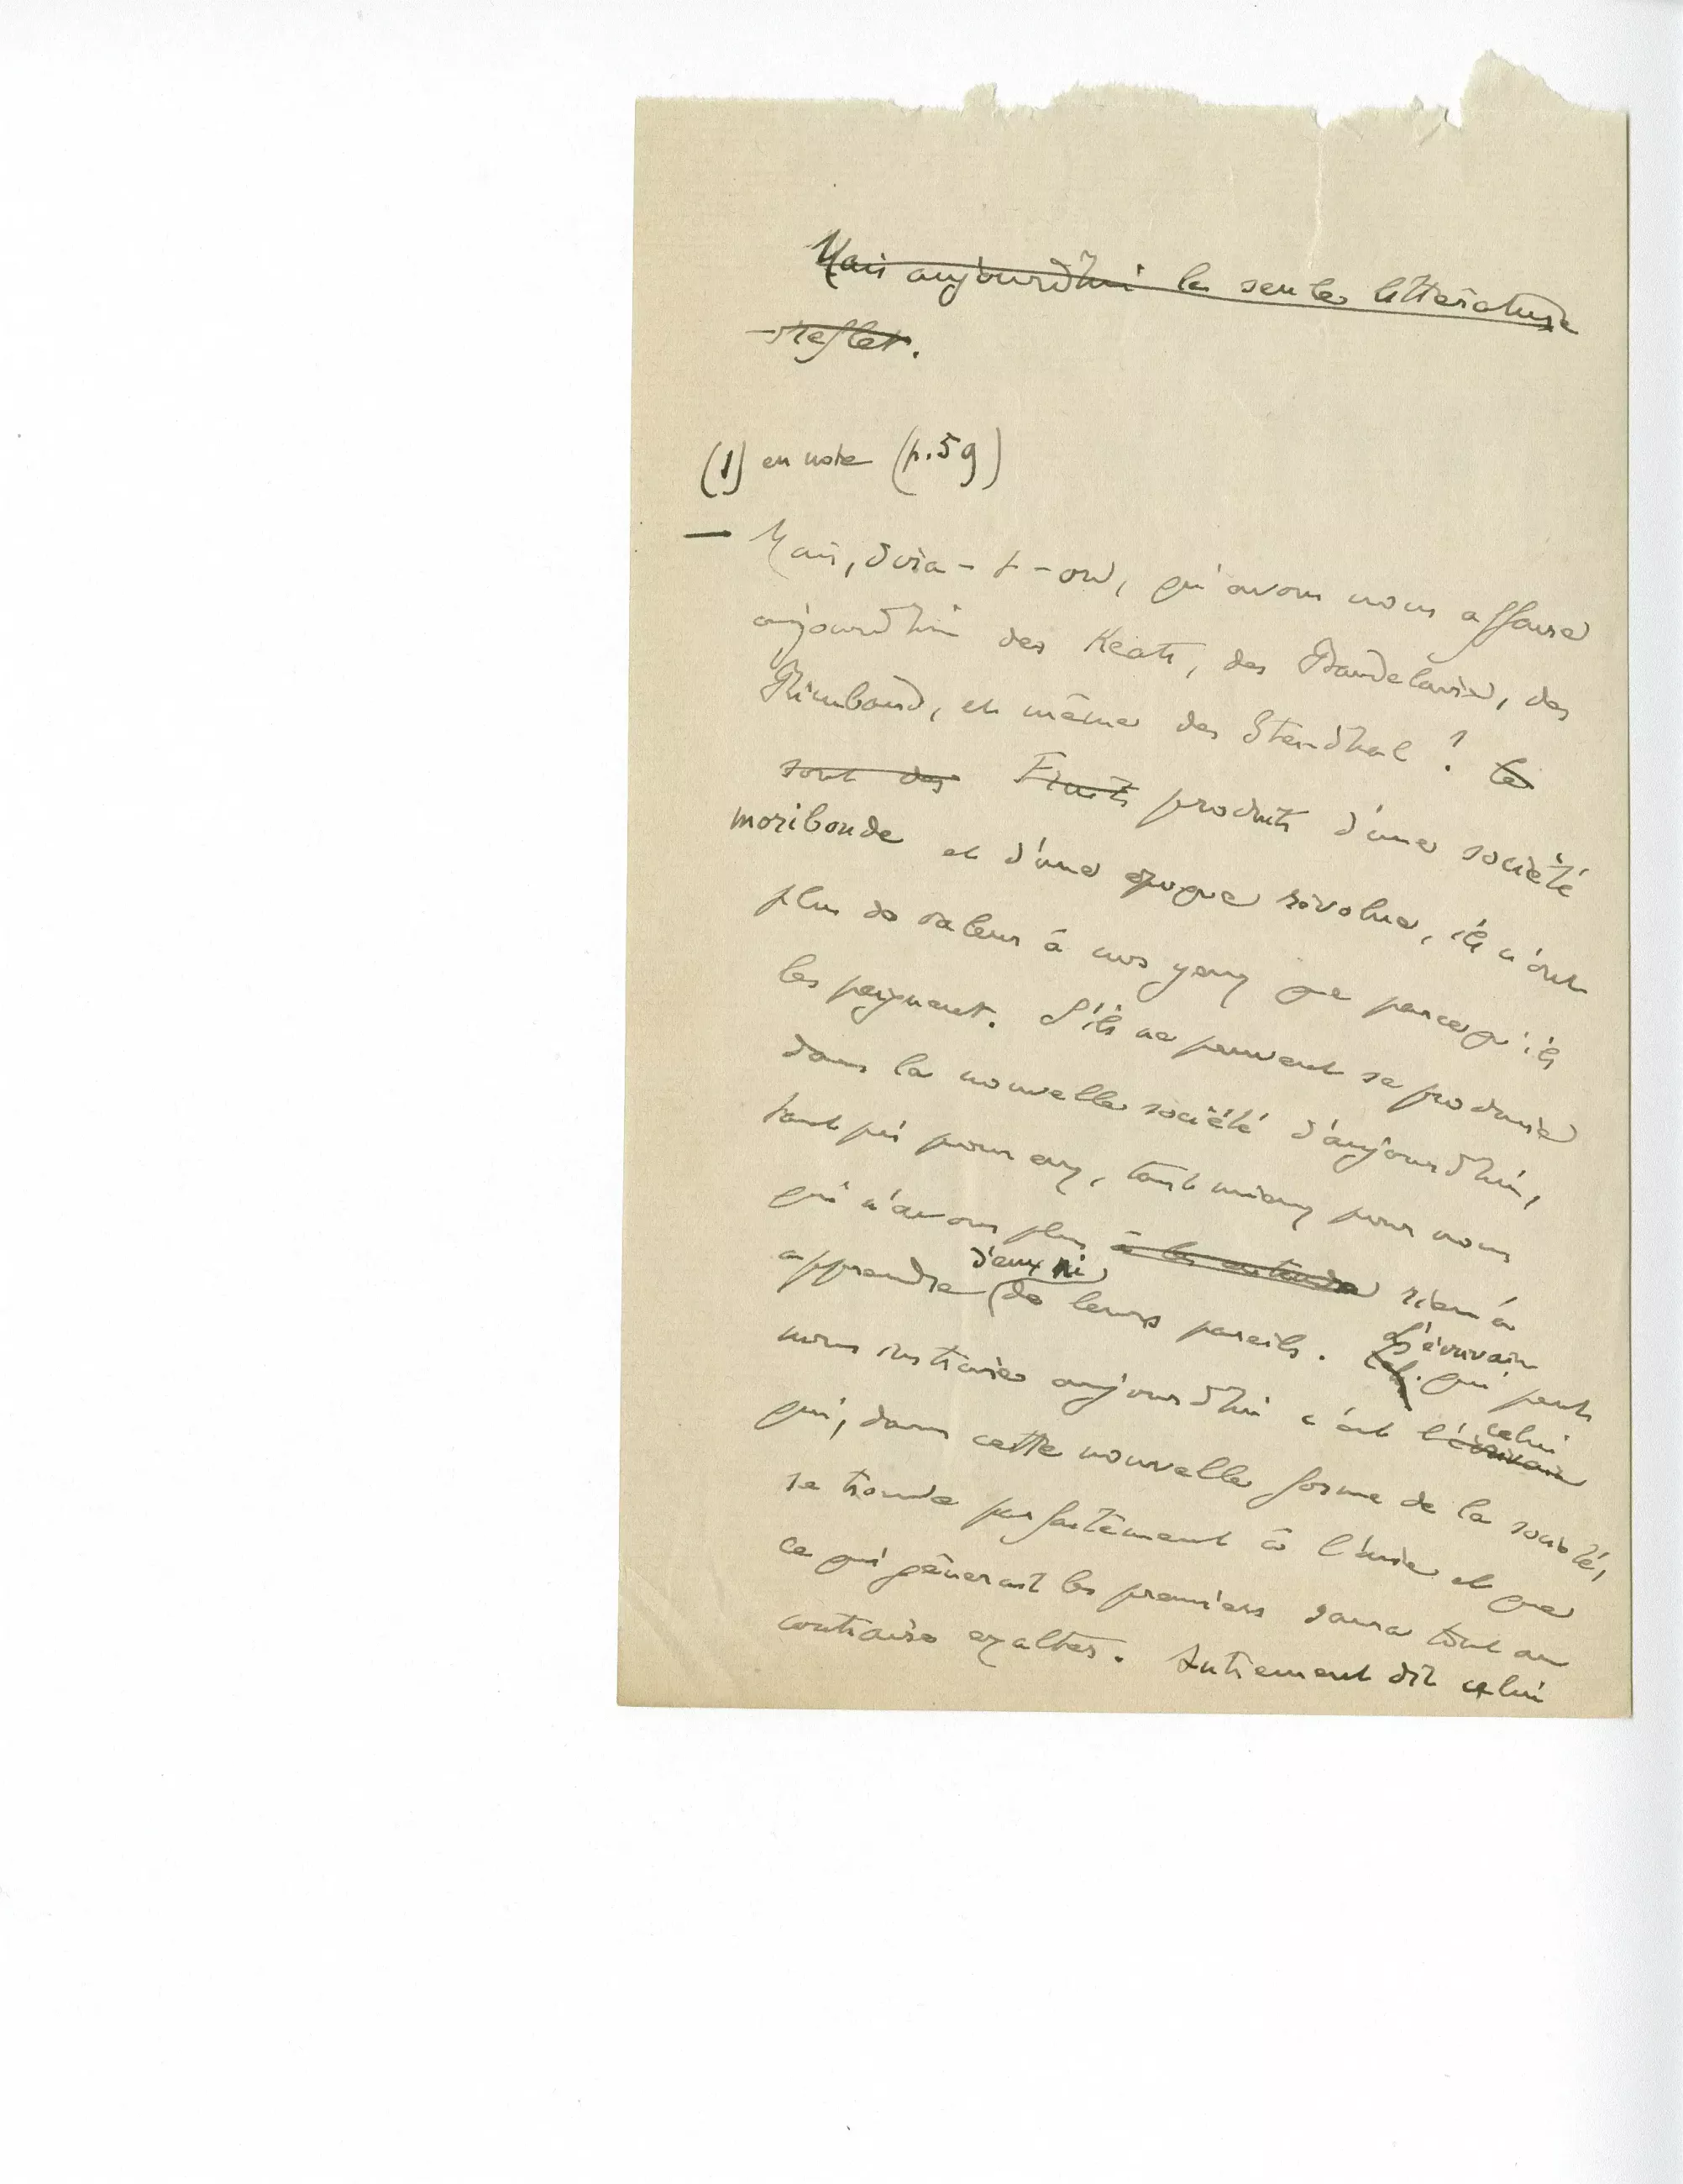 Mais aujourd'hui la seule littérature
reflet.
(1) en note (p.59)
— Mais, dira-t-on, qu'avons nous affaire
aujourd'hui des Keats, des Baudelaire, des
Rimbaud, et même des Stendhal ? le
sont des Fruits produits d'une société
moribonde et d'une époque révolue, ils n'ont
plus de valeur à nos yeux que parcequ'ils
les peignent. S'ils ne peuvent se produire
dans la nouvelle société d'aujourd'hui,
tant pis pour eux, tant mieux pour nous
qui n'avons plus à les entendre rien à
d'eux ni
apprendre de leurs pareils.
L'écrivain
qui peut
nous instruire aujourd'hui c'est l'écrivain
celui
qui, dans cette nouvelle forme de la société,
se trouve parfaitement à l'aise et que
ce qui gênerait les premiers saura tout au
contraire exalter. Autrement dit celui